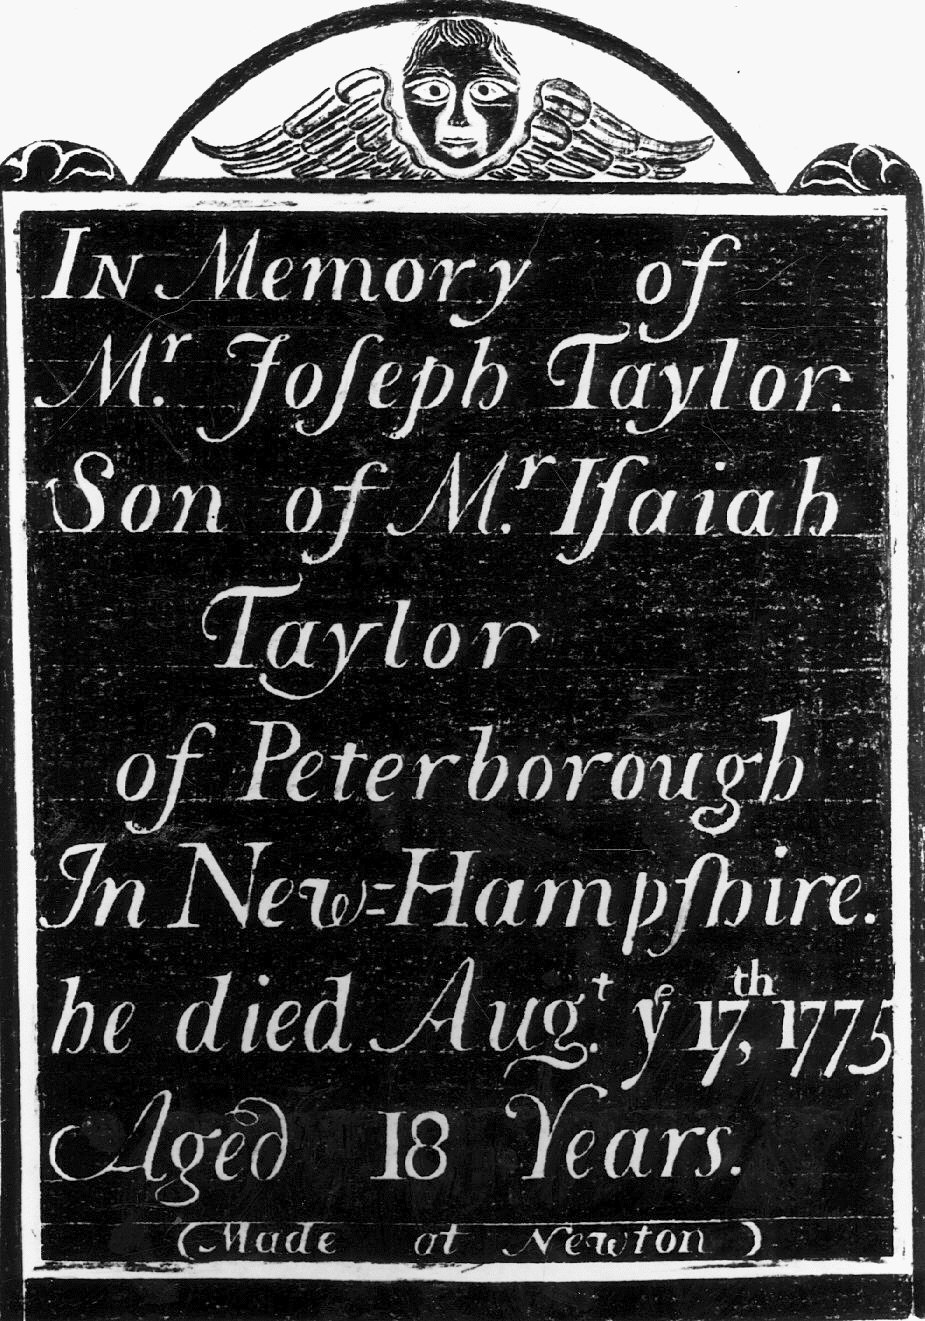 IN Memory of
Mʳ. Joſeph Taylor.
Son of Mʳ. Iſaiah
Taylor
of Peterborough
In New=Hampſhire.
he died Augᵗ. yᵉ 17ᵗʰ, 1775
Aged 18 Years.
(Made at Newton)